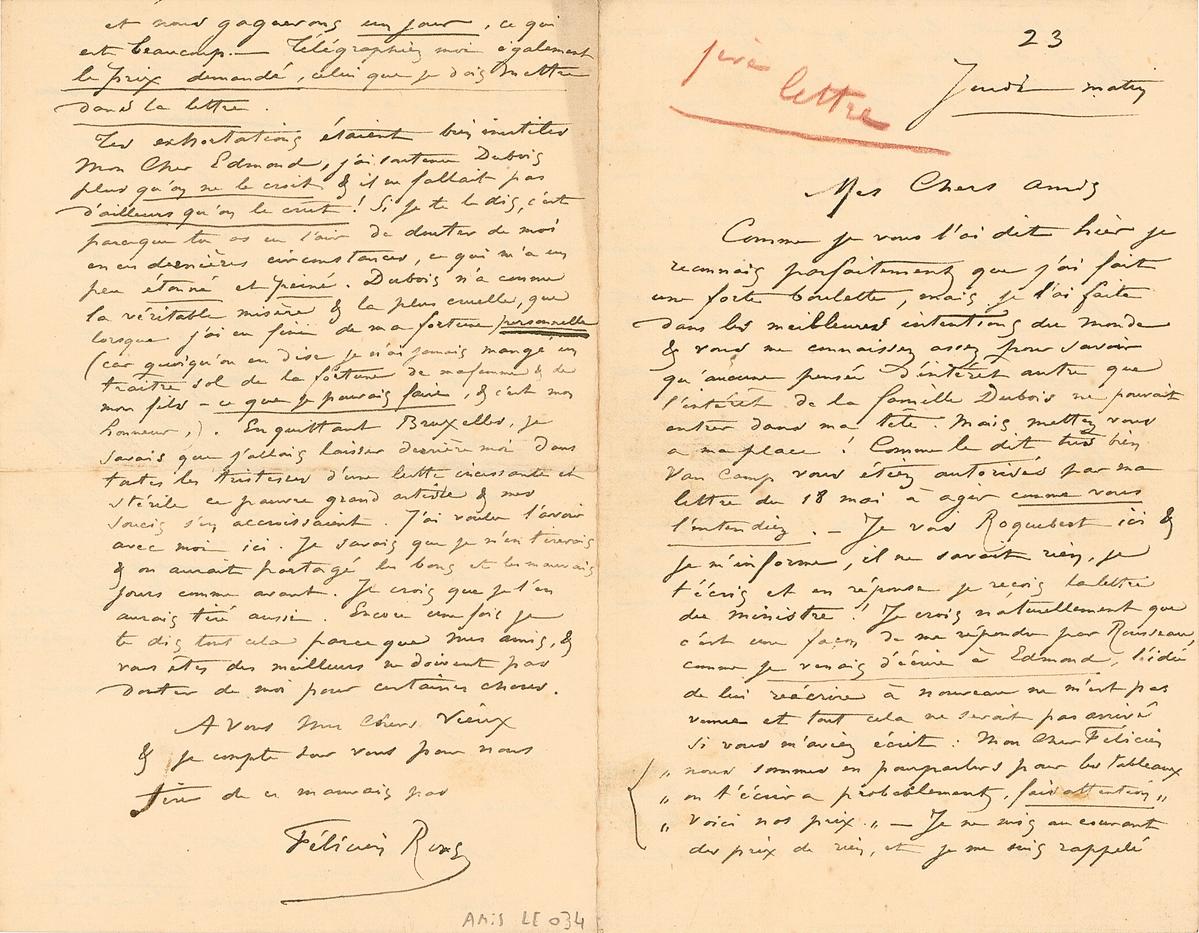 23
1ère lettre
Jeudi matin
Mes Chers amis
Comme je vous l'ai dit hier je
reconnais parfaitement que j'ai fait
une forte boulette, mais je l'ai faite
dans les meilleures intentions du monde
& vous me connaissez assez pour savoir
qu'aucune pensée d'intérêt autre que
l'intérêt de la famille Dubois ne pouvait
entrer dans ma tête. Mais mettez vous
a ma place ! Comme le dit très bien
Van Camp vous étiez autorisés par ma
lettre du 18 mai à agir comme vous
l'entendiez. — Je vois Roquebert ici &
je m'informe, il ne savait rien, je
t'écris et en réponse je reçois la lettre
du ministre ! Je crois naturellement que
c'est une façon de me répondre par Rousseau,
comme je venais d'écrire à Edmond, l'idée
de lui réécrire à nouveau ne m'est pas
venue et tout cela ne serait pas arrivé
si vous m'aviez écrit : Mon Cher Félicien
„ nous sommes en pourparlers pour les tableaux
„ on t'écrira probablement, fais attention „
„ voici nos prix. „ — Je ne suis au courant
des prix de rien, et je me suis rappelé
et nous gagnerons un jour, ce qui
est beaucoup. — Télégraphiez moi également
le prix demandé, celui que je dois mettre
dans la lettre.
Tes exhortations étaient bien inutiles
Mon Cher Edmond, j'ai soutenu Dubois
plus qu'on ne le croit & il ne fallait pas
d'ailleurs qu'on le crut ! Si je te le dis, c'est
parceque tu as eu l'air de douter de moi
en ces dernières circonstances, ce qui m'a un
peu étonné et peiné. Dubois n'a connu
la véritable misère & la plus cruelle, que
lorsque j'ai eu fini de ma fortune personnelle
(car quoiqu'on en dise je n'ai jamais mangé un
traitre sol de la fortune de ma femme & de
mon fils – ce que je pouvais faire, & c'est mon
honneur,). En quittant Bruxelles, je
savais que j'allais laisser derrière moi dans
toutes les tristesses d'une lutte incessante et
stérile ce pauvre grand artiste & mes
soucis s'en accroissaient. J'ai voulu l'avoir
avec moi ici. Je savais que je m'en tirerais
& on aurait partagé les bons et les mauvais
jours comme avant. Je crois que je l'en
aurais tiré aussi. Encore une fois je
te dis tout cela parceque mes amis, &
vous êtes des meilleurs ne doivent pas
douter de moi pour certaines choses.
A vous mes chers vieux
& je compte sur vous pour nous
tirer de ce mauvais pas
Félicien Rops
AMIS LE 034